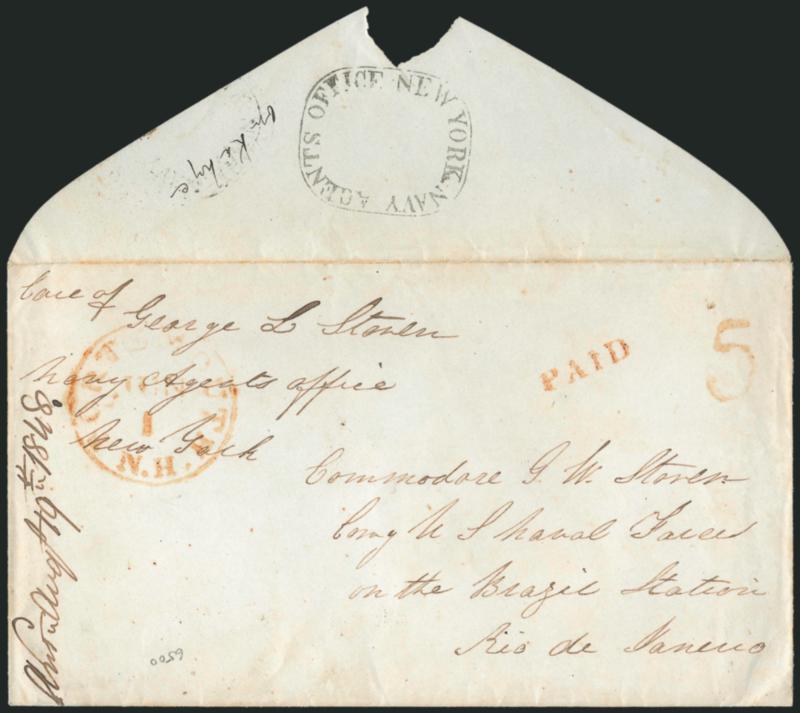 OFFICE NEW YORK NAVY AGENTS
Care of
George L Storer
Navy Agents office
New York
PORTSMOUTH
1
N.H.
PAID
5
Commodore G. W. Storer
Comg U S Naval Forces
on the Brazil Station
Rio de Janeiro
Augt 19th 1848
6500